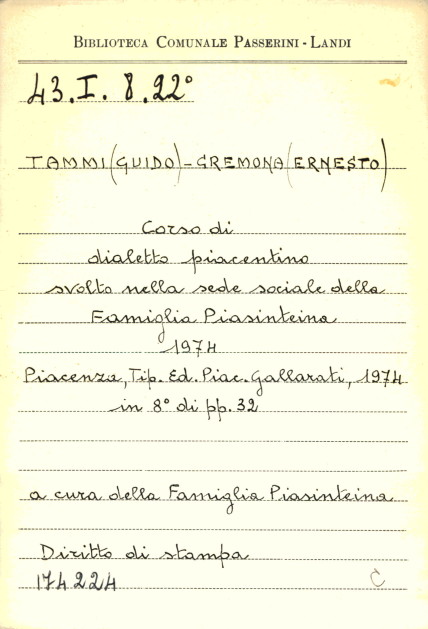 BIBLIOTECA COMUNALE PASSERINI - LANDI
43.I.8.22°
TAMMI (GUIDO) - CREMONA (ERNESTO)
Corso di
dialetto piacentino
svolto nella sede sociale della
Famiglia Piasinteina
1974
Piacenza, Tip. Ed. Piac. Gallarati, 1974
in 8° di pp. 32
a cura della Famiglia Piasinteina
Diritto di stampa
174224 C